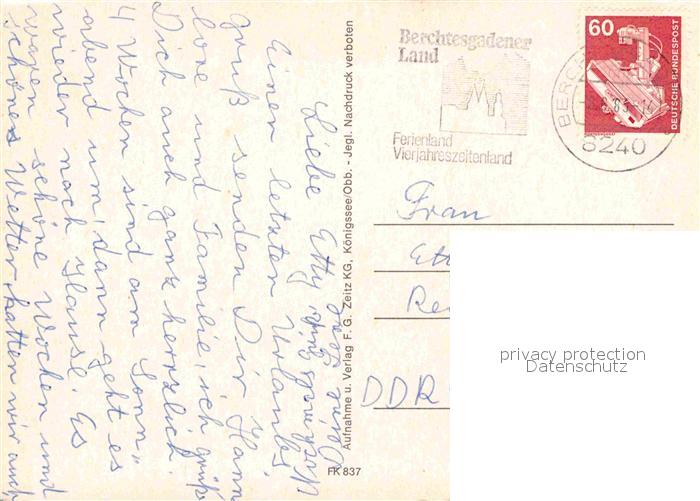 Berchtesgadener
Land
Ferienland
Vierjahreszeitenland
60
DEUTSCHE BUNDESPOST
BERCH
8240
Liebe Etty,
Einen letzten Urlaubs
gruß senden Dir, Hanne
lore und Familie, ich grüße
Dich auch ganz herzlich.
4 Wochen sind am Sonn„
abend um, dann geht es
wieder nach Hause. Es
waren schöne Wochen und
schönes Wetter hatten wir auch
Aufnahme u. Verlag F. G. Zeitz KG, Königssee/Obb. - Jegl. Nachdruck verboten
FK 837
Frau
Ett
Re
DDR
privacy protection
Datenschutz